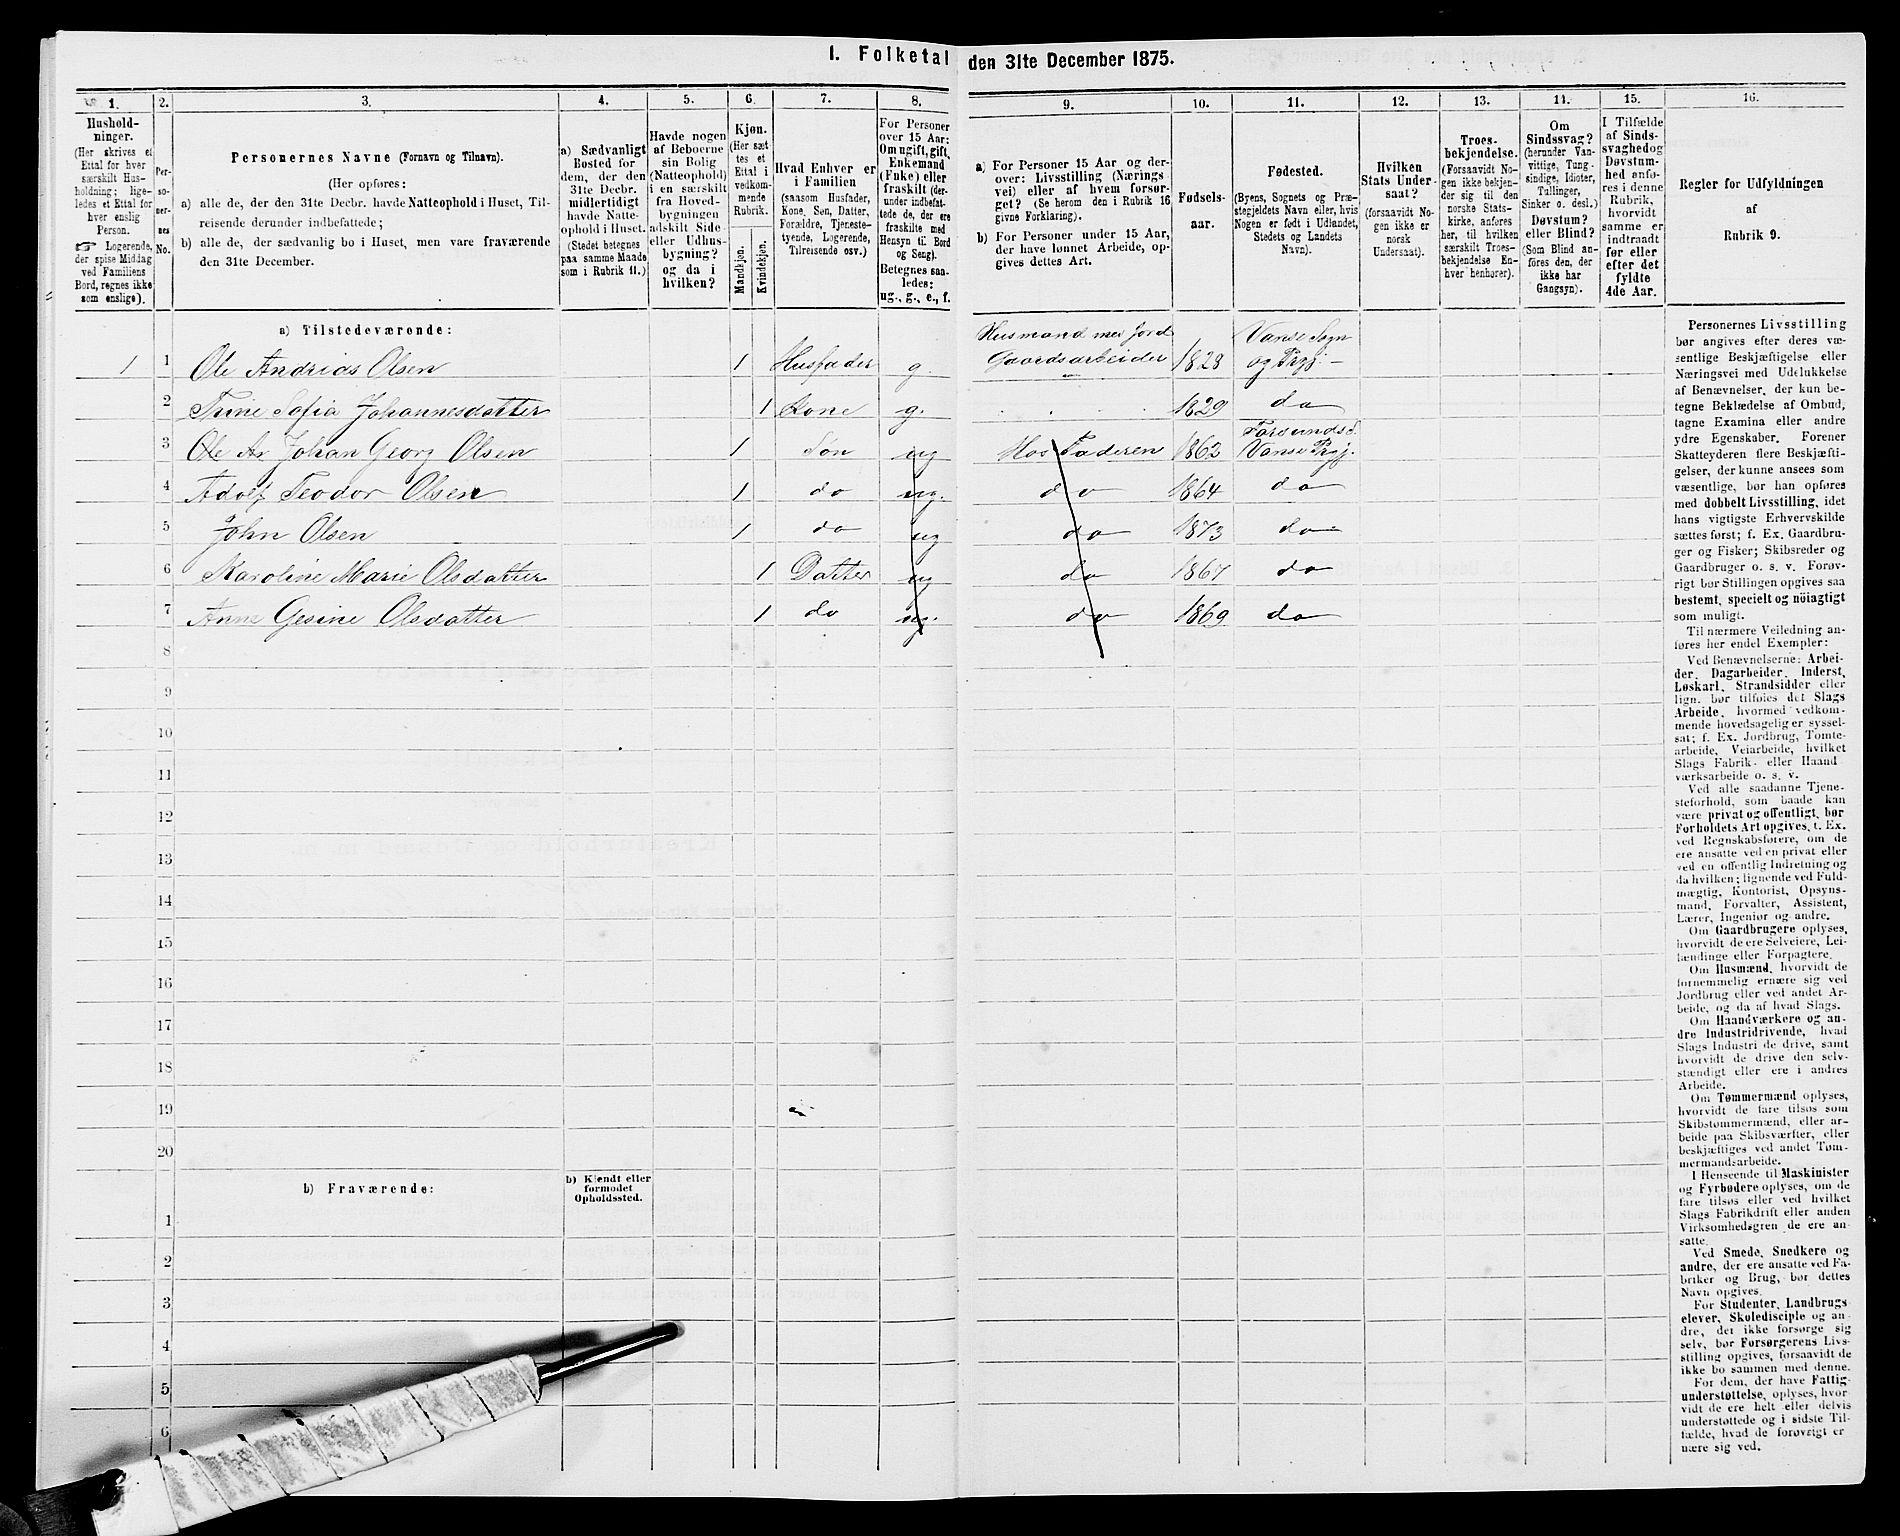 I. Folketal den 31te December 1875.
1.
Hushold-
ninger.
(Her skrives et
Ettal for hver
særskilt Hus-
holdning; lige-
ledes et Ettal for
hver enslig
Person.
☞ Logerende,
der spise Middag
ved Familiens
Bord, regnes ikke
som enslige).
2.
Per-
so-
ner-
nes
No.
3.
Personernes Navne (Fornavn og Tilnavn).
(Her opføres:
a) alle de, der den 31te Decbr. havde Natteophold i Huset, Til-
reisende derunder indbefattede;
b) alle de, der sædvanlig bo i Huset, men vare fraværende
den 31te December.
4.
a) Sædvanligt
Bosted for
dem, der den
31te Decbr.
midlertidigt
havde Natte-
ophold i Huset.
(Stedet betegnes
paa samme Maade
som i Rubrik 11.)
5.
Havde nogen
af Beboerne
sin Bolig
(Natteophold)
i en særskilt
fra Hoved-
bygningen
adskilt Side-
eller Udhus-
bygning?
og da i
hvilken?
6.
Kjøn.
(Her sæt
tes et
Ettal i
vedkom-
mende
Rubrik.
Mandkjøn.
Kvindekjøn.
7.
Hvad Enhver er
i Familien
(saasom Husfader,
Kone, Søn, Datter,
Forældre, Tjeneste-
tyende, Logerende,
Tilreisende osv.)
8.
For Personer
over 15 Aar:
Om ugift, gift,
Enkemand
(Enke) eller
fraskilt (der-
under indbefat-
tede de, der ere
fraskilte med
Hensyn til Bord
og Seng).
Betegnes saa-
ledes:
ug., g., e., f.
9.
a) For Personer 15 Aar og der-
over: Livsstilling (Nærings
vei) eller af hvem forsør-
get? (Se herom den i Rubrik 16
givne Forklaring).
b) For Personer under 15 Aar,
der have lønnet Arbeide, op-
gives dettes Art.
10.
Fødsels-
aar.
11.
Fødested.
(Byens, Sognets og Præ-
stegjeldets Navn eller, hvis
Nogen er født i Udlandet,
Stedets og Landets
Navn).
12.
Hvilken
Stats Under-
saat?
(forsaavidt No-
gen ikke er
norsk
Undersaat).
13.
Troes-
bekjendelse.
(Forsaavidt No-
gen ikke bekjen-
der sig til den
norske Stats-
kirke, anføres
her, til hvilken
særskilt Troes-
bekjendelse En-
hver henhører).
14.
Om
Sindssvag?
(herunder Van-
vittige, Tung-
sindige, Idioter,
Tullinger,
Sinker o. desl.)
Døvstum?
eller Blind?
(Som Blind an-
føres den, der
ikke har
Gangsyn).
15.
I Tilfælde
af Sinds-
svaghed og
Døvstum-
hed anfø-
res i denne
Rubrik,
hvorvidt
samme er
indtraadt
før eller
efter det
fyldte
4de Aar.
16.
Regler for Udfyldningen
af
Rubrik 9.
a) Tilstedeværende:
1 1 Ole Andrias Olsen 1 Husfader g. Husmand med Jord Gaardsarbeider 1828 Vanse Sogn og Prgj.
2 Trine Sofia Johannesdatter 1 Kone g. 1829 do
3 Ole An Johan Georg Olsen 1 Søn ug Hos Faderen 1862 Farsund S. Vanse Prgj.
4 Adolf Teodor Olsen 1 do ug. do 1864 do
5 John Olsen 1 do ug do 1873 do
6 Karoline Marie Olsdatter 1 Datter ug do 1867 do
7 Anne Gesine Olsdatter 1 do ug. do 1869 do
8
9
10
11
12
13
14
15
16
17
18
19
20
b) Fraværende:
b) Kjendt eller
formodet
Opholdssted.
1
2
3
4
5
6
Personernes Livsstilling
bør angives efter deres væ-
sentlige Beskjæftigelse eller
Næringsvei med Udelukkelse
af Benævnelser, der kun be-
tegne Beklædelse af Ombud,
tagne Examina eller andre
ydre Egenskaber. Forener
Skatteyderen flere Beskjæfti-
gelser, der kunne ansees som
væsentlige, bør han opføres
med dobbelt Livsstilling, idet
hans vigtigste Erhvervskilde
sættes først; f. Ex. Gaardbru-
ger og Fisker; Skibsreder og
Gaardbruger o. s. v. Forøv-
rigt bør Stillingen opgives saa
bestemt, specielt og nöiagtigt
som muligt.
Til nærmere Veiledning an-
føres her endel Exempler:
Ved Benævnelserne: Arbei-
der, Dagarbeider, Inderst,
Løskarl, Strandsidder eller
lign. bør tilføies det Slags
Arbeide, hvormed vedkom-
mende hovedsagelig er syssel-
sat; f. Ex. Jordbrug, Tomte-
arbeide, Veiarbeide, hvilket
Slags Fabrik- eller Haand
værksarbeide o. s. v.
Ved alle saadanne Tjene-
steforhold, som baade kan
være privat og offentligt, bør
Forholdets Art opgives, f. Ex.
ved Regnskabsførere, om de
ere ansatte ved en privat eller
ved en offentlig Indretning og
da hvilken; lignende ved Fuld-
mægtig, Kontorist, Opsyns-
mand, Forvalter, Assistent,
Lærer, Ingeniør og andre.
Om Gaardbrugere oplyses,
hvorvidt de ere Selveiere, Lei-
lændinge eller Forpagtere.
Om Husmænd, hvorvidt de
fornemmelig ernære sig ved
Jordbrug eller ved andet Ar-
beide, og da af hvad Slags.
Om Haandværkere og an-
dre Industridrivende, hvad
Slags Industri de drive, samt
hvorvidt de drive den selv-
stændigt eller ere i andres
Arbeide.
Om Tømmermænd oplyses,
hvorvidt de fare tilsøs som
Skibstømmermænd, eller ar-
beide paa Skibsværfter, eller
beskjæftiges ved andet Tøm-
mermandsarbeide.
I Henseende til Maskinister
og Fyrbødere oplyses, om de
fare tilsøs eller ved hvilket
Slags Fabrikdrift eller anden
Virksomhedsgren de ere an-
satte.
Ved Smede, Snedkere og
andre, der ere ansatte ved Fa-
briker og Brug, bør dettes
Navn opgives.
For Studenter, Landbrugs
elever, Skoledisciple og an-
dre, der ikke forsørge sig
selv, bør Forsørgerens Livs-
stilling opgives, forsaavidt de
ikke bo sammen med denne.
For dem, der have Fattig-
understøttelse, oplyses, hvor-
vidt de ere helt eller delvis
understøttede og i sidste Til-
fælde, hvad de forøvrigt er
nære sig ved.